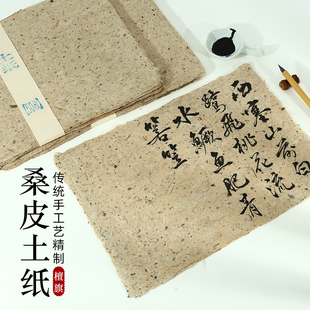 西塞山前白
鷺飛桃花流
水鱖魚肥青
箬笠
桑皮土纸
传统手工艺精制
檀旗